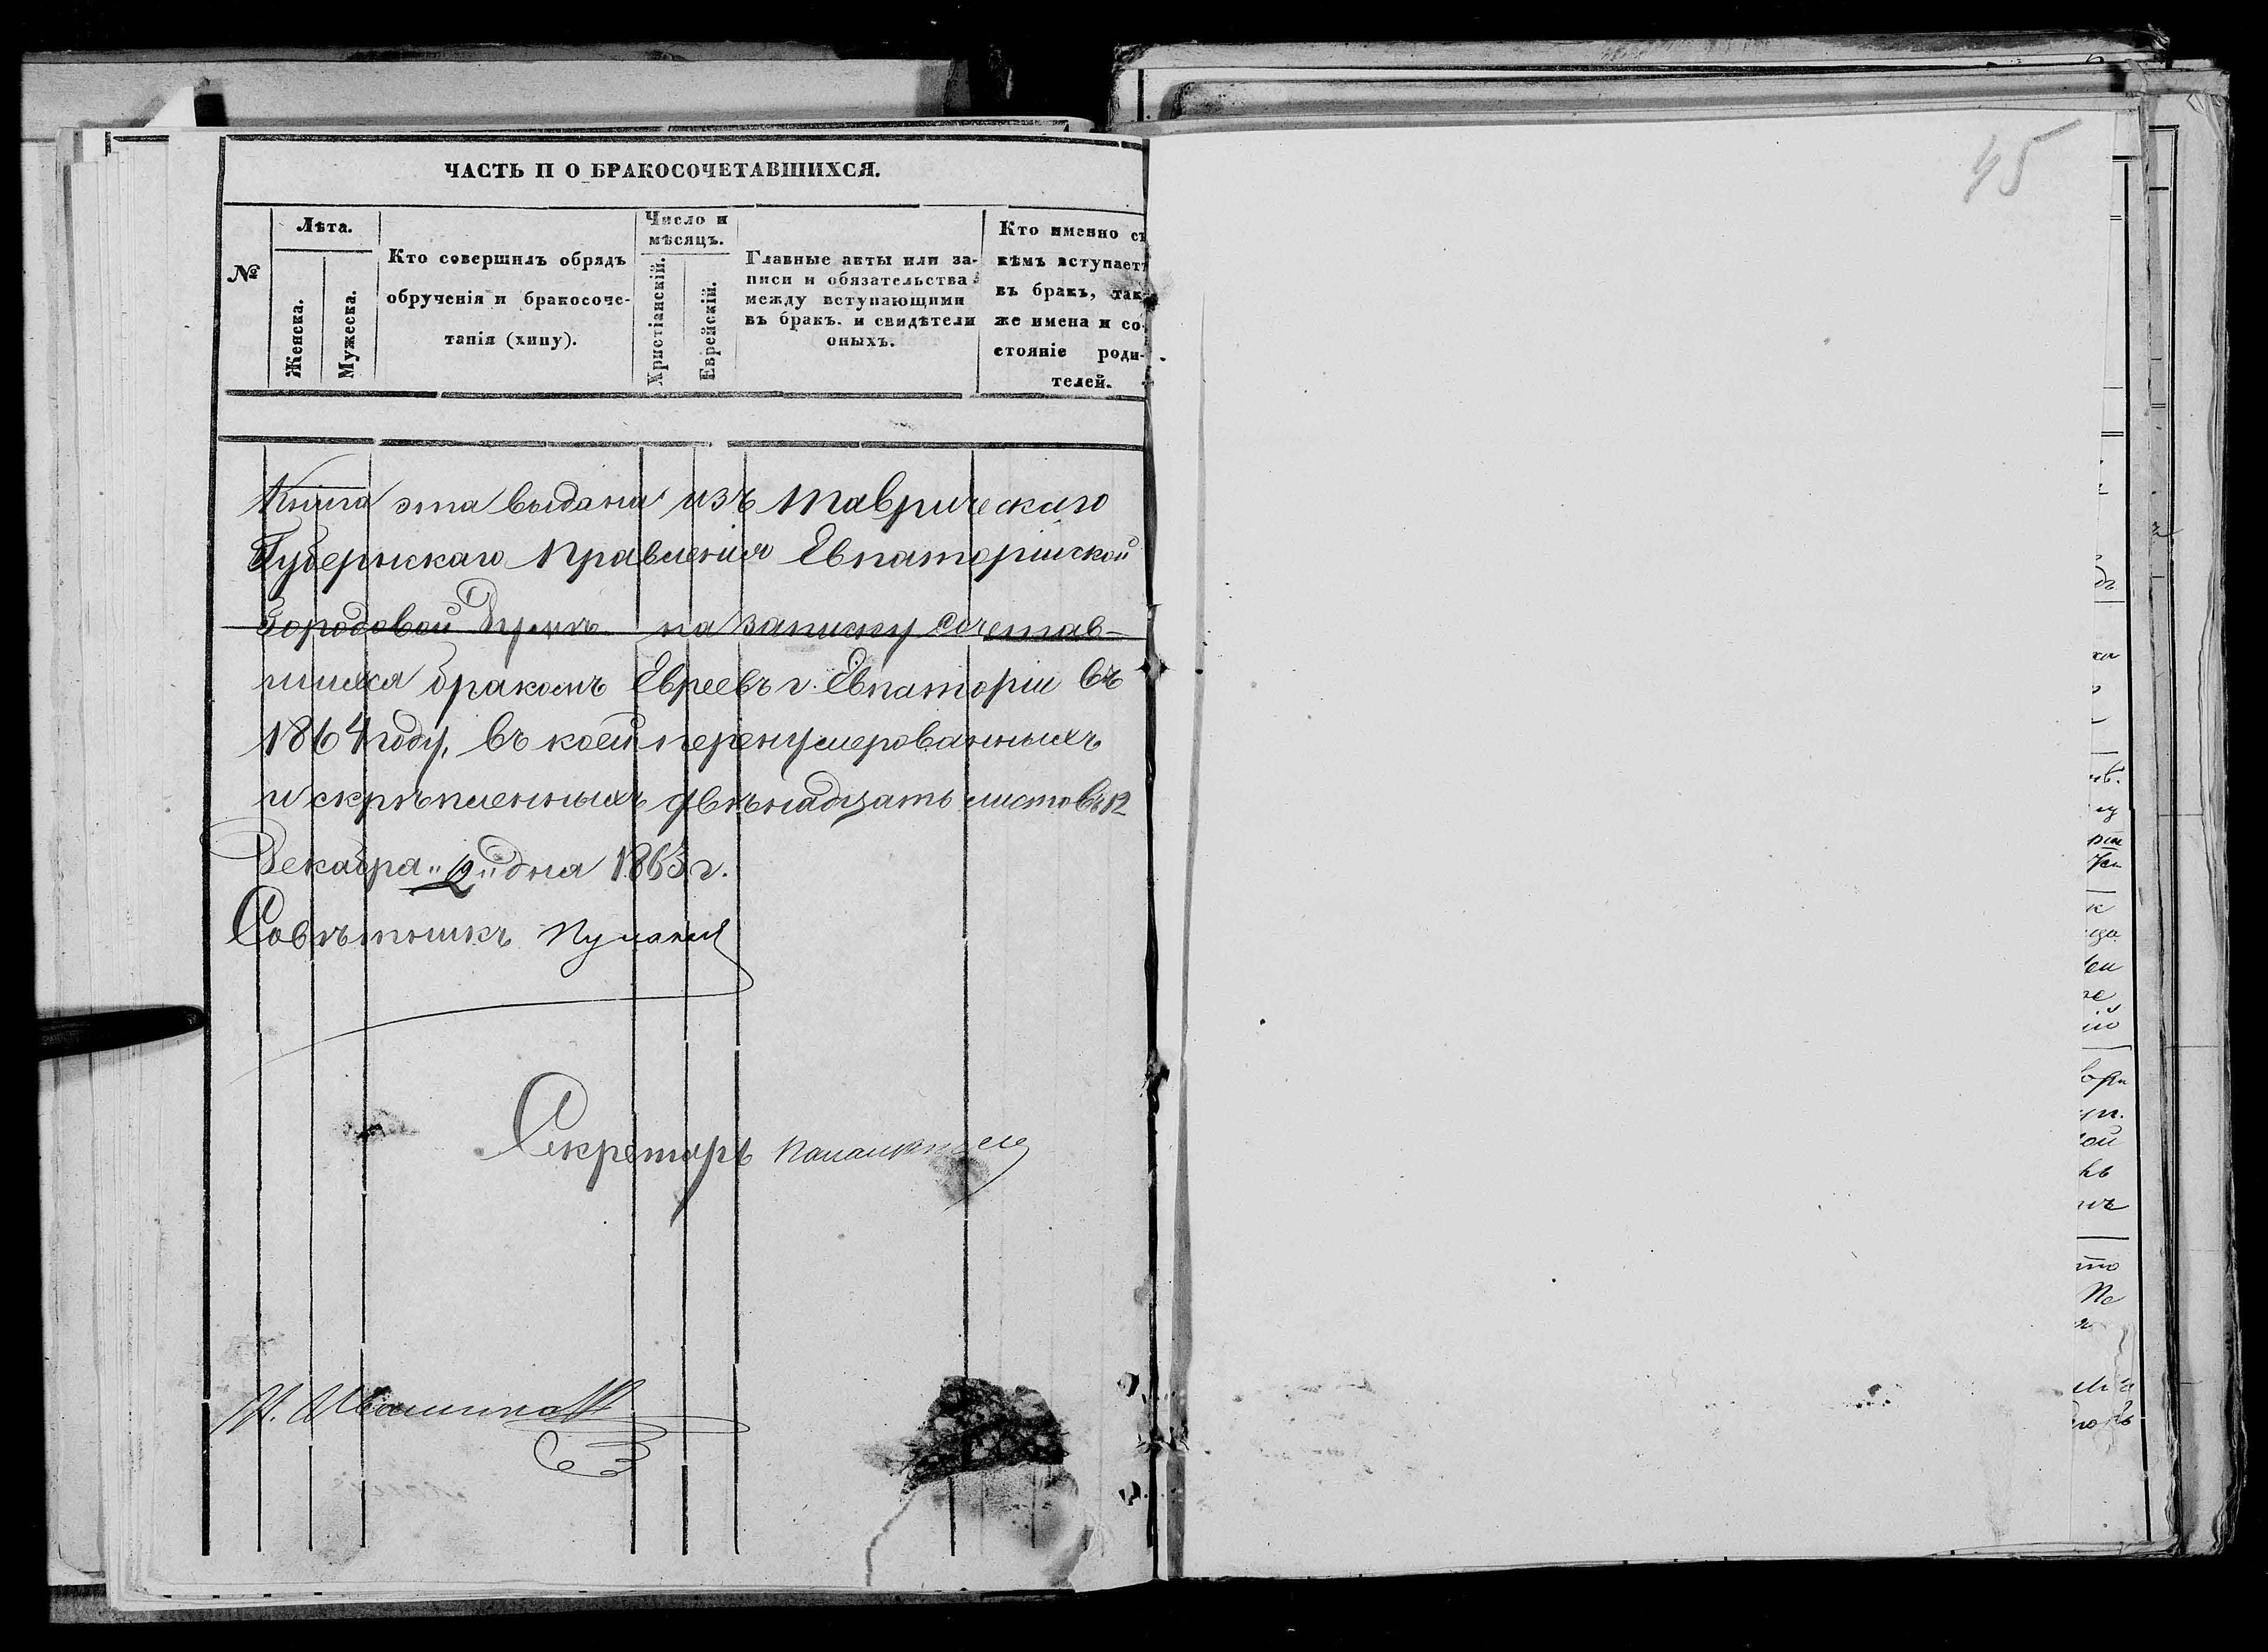 ЧАСТЬ II О БРАКОСОЧЕТАВШИХСЯ.
№
Лѣта.
Женска.
Мужеска.
Кто совершилъ обрядъ
обрученія и бракосоче-
танія (хипу).
Число и
мѣсяцъ.
Христіанскій.
Еврейскій.
Главные акты или за-
писи и обязательства
между вступающими
въ бракъ. и свидѣтели
оныхъ.
Кто именно съ
кѣмъ вступаетъ
въ бракъ, так-
же имена и со-
стояніе роди-
телей.
Книга эта выдана изъ Таврическаго
Губернскаго Правленія Евпаторійской
Городовой Думѣ на записку сочетав-
шихся бракомъ Евреевъ г. Евпаторіи въ
1864 году, въ коей перенумерованныхъ
и скрѣпленныхъ двѣнадцать листовъ 12
Декабря "19" дня 1863 г.
Совѣтникъ
Секретарь
45